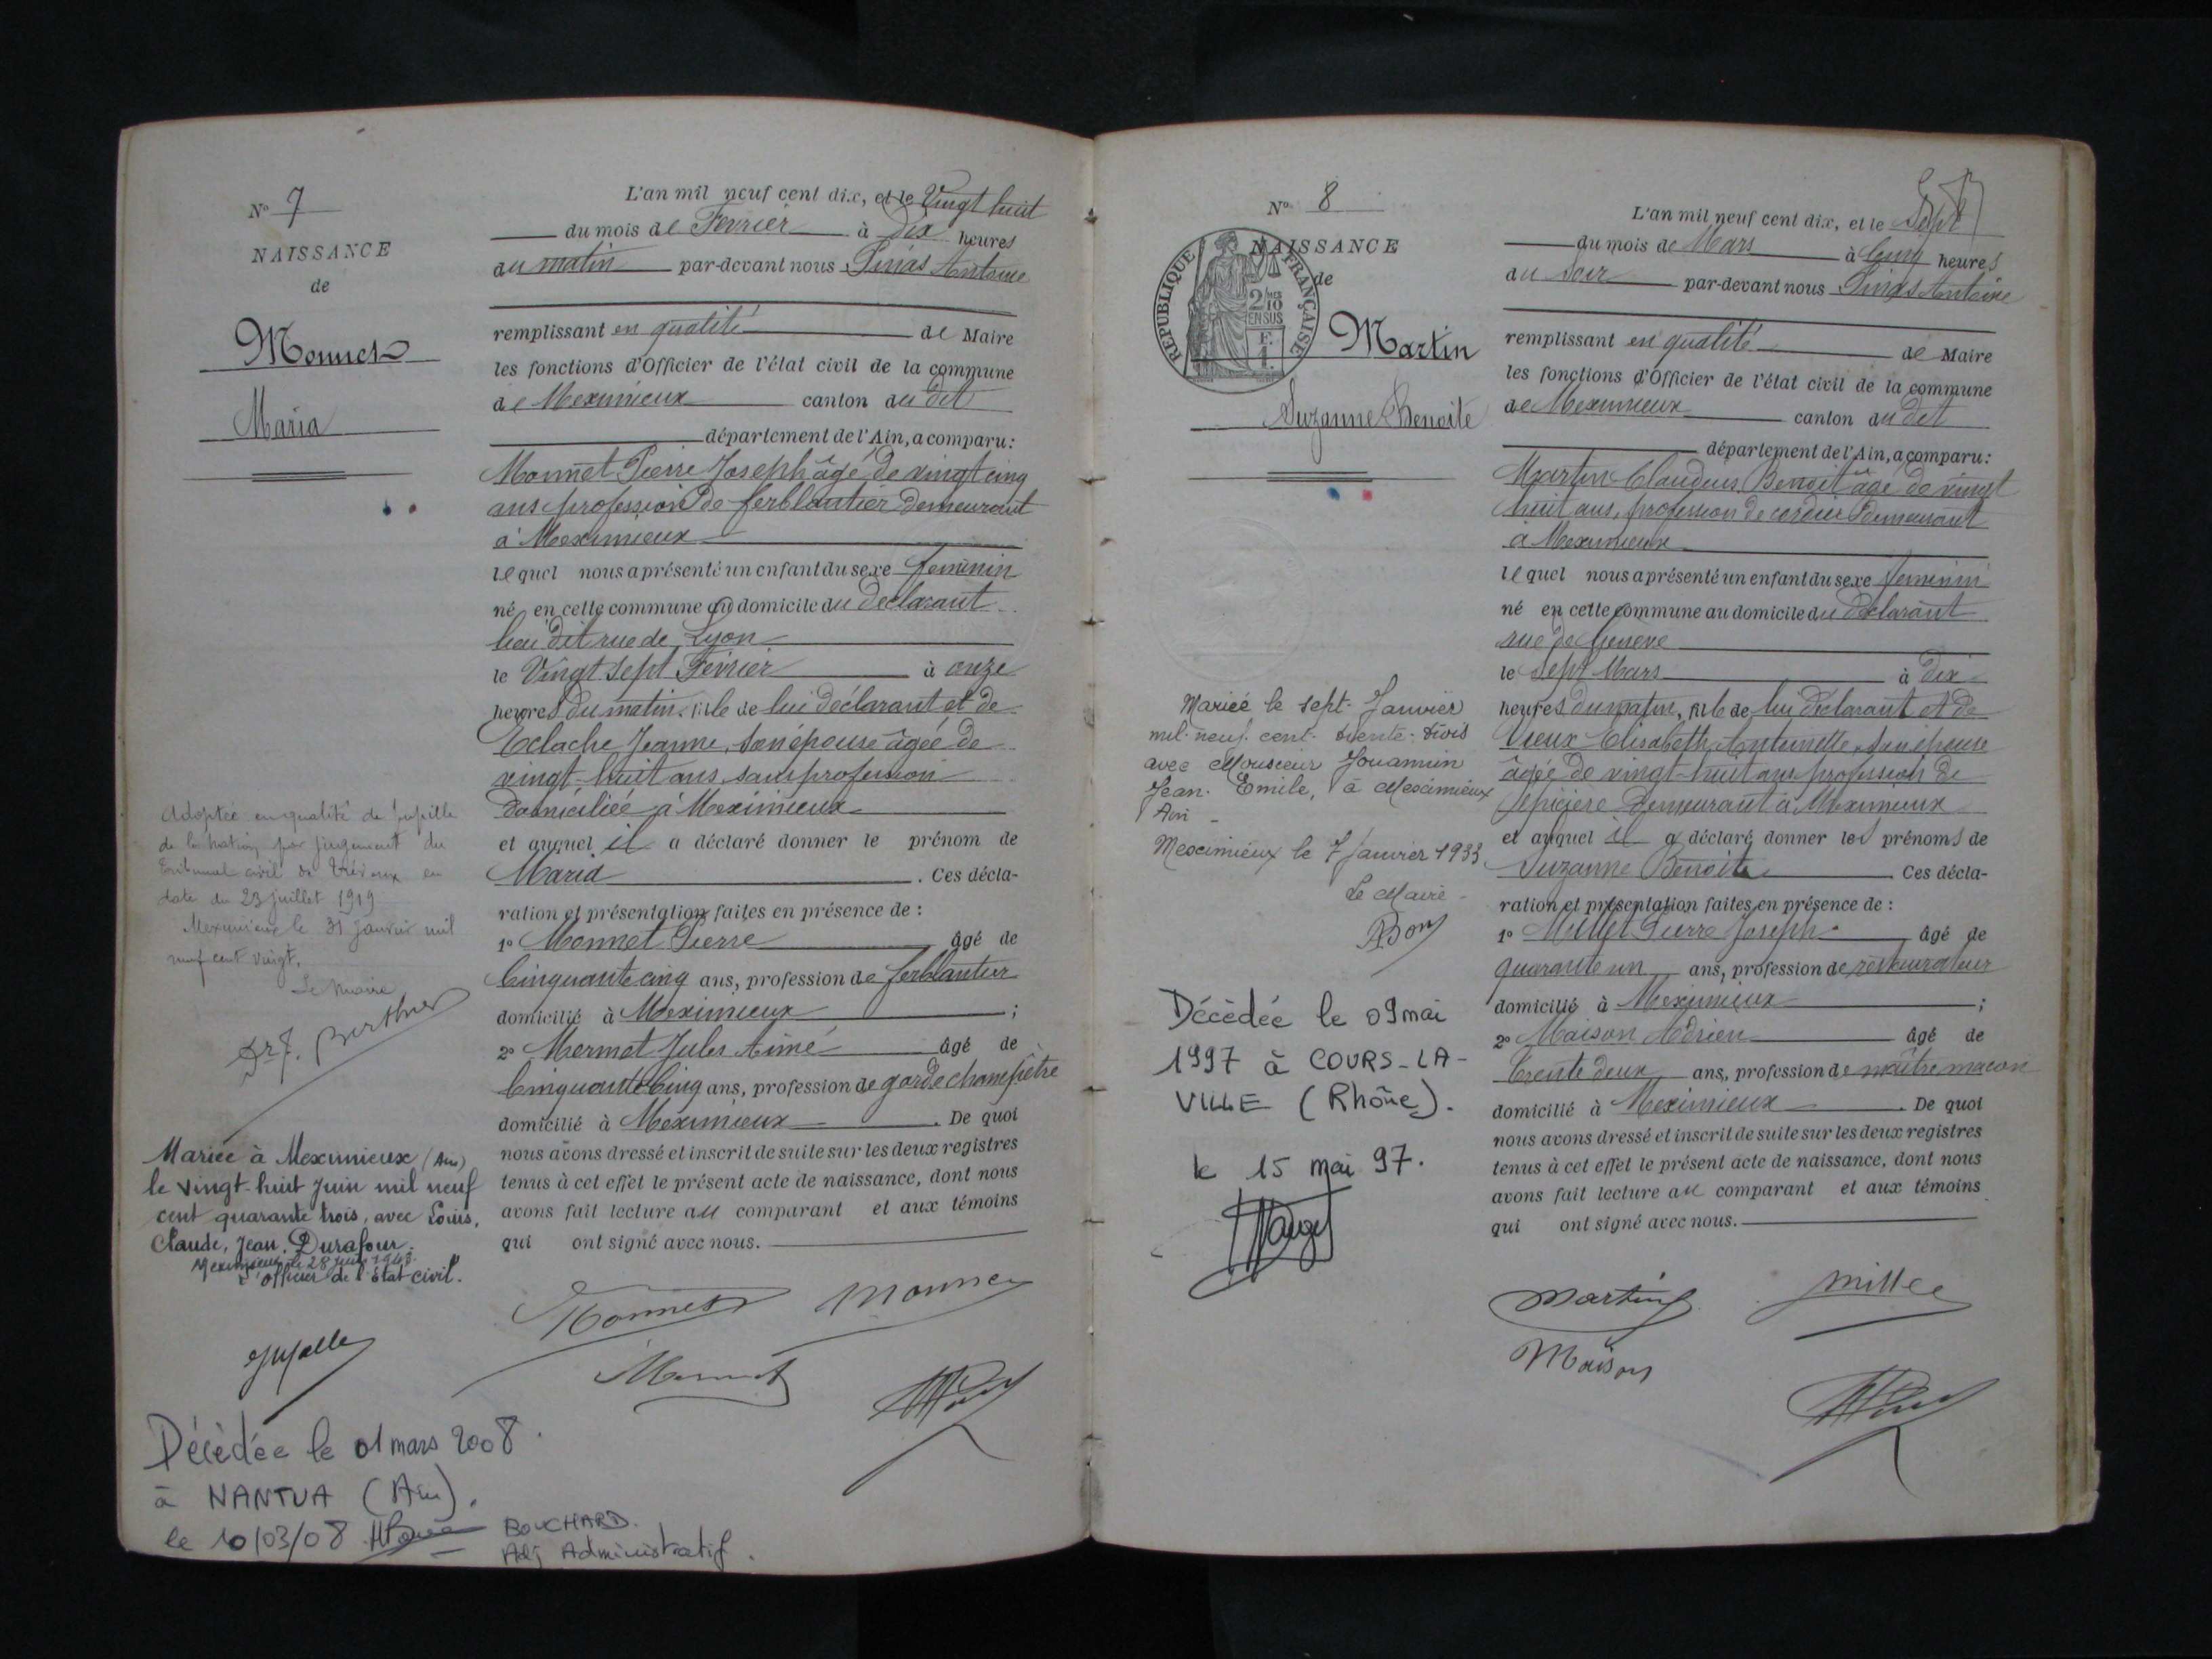 N° 7
NAISSANCE
de
Monnet
Maria
L'an mil neuf cent dix, et le Vingt huit
du mois de Fevrier à dix heures
du matin par-devant nous Pinas Antoine
remplissant en qualité de Maire
les fonctions d'Officier de l'état civil de la commune
de Meximieux canton du dit
département de l'Ain, a comparu :
Monnet Pierre Joseph âgé de vingt cinq
ans profession de ferblantier demeurant
à Meximieux
lequel nous a présenté un enfant du sexe feminin
né en cette commune au domicile du declarant
lieu dit rue de Lyon
le Vingt sept Fevrier à onze
heures du matin, fille de lui déclarant et de
Eclache Jeanne, son épouse âgée de
vingt-huit ans sans profession
domiciliée à Meximieux
et auquel il a déclaré donner le prénom de
Maria . Ces décla-
ration et présentation faites en présence de :
1° Monnet Pierre âgé de
Cinquante cinq ans, profession de ferblantier
domicilié à Meximieux ;
2° Mermet Jules Aimé âgé de
Cinquante Cinq ans, profession de garde champêtre
domicilié à Meximieux . De quoi
nous avons dressé et inscrit de suite sur les deux registres
tenus à cet effet le présent acte de naissance, dont nous
avons fait lecture au comparant et aux témoins
qui ont signé avec nous.
Monnet Monnet
Mermet
Adoptée en qualité de pupille
de la Nation par jugement du
Tribunal civil de Trévoux en
date du 23 juillet 1919
Meximieux le 31 janvier mil
neuf cent vingt.
Le Maire
Dr J. Berthier
Mariée à Meximieux (Ain)
le vingt-huit Juin mil neuf
cent quarante trois, avec Louis,
Claude, Jean, Durafour.
Meximieux le 28 Juin 1943.
L'officier de l'Etat-civil.
Décèdée le 01 mars 2008
à NANTUA (Ain).
le 10/03/08
BOUCHARD.
Adj Administratif.
N° 8
NAISSANCE
de
REPUBLIQUE FRANÇAISE
2/10
EN SUS
Martin
Suzanne Benoite
L'an mil neuf cent dix, et le Sept
du mois de Mars à Cinq heures
du Soir par-devant nous Pinas Antoine
remplissant en qualité de Maire
les fonctions d'Officier de l'état civil de la commune
de Meximieux canton du dit
département de l'Ain, a comparu :
Martin Claudius Benoit âgé de vingt
huit ans, profession de demeurant
à Meximieux
lequel nous a présenté un enfant du sexe feminin
né en cette commune au domicile du declarant
rue de Geneve
le Sept Mars à dix
heures du matin, fille de lui declarant et de
Vieux Elisabeth Antoinette, son épouse
âgée de vingt-huit ans profession de
epiciere demeurant à Meximieux
et auquel il a déclaré donner les prénoms de
Suzanne Benoite Ces décla-
ration et présentation faites en présence de :
1° Millet Pierre Joseph âgé de
quarante un ans, profession de restaurateur
domicilié à Meximieux ;
2° Maison Adrien âgé de
Trente deux ans, profession de maître macon
domicilié à Meximieux . De quoi
nous avons dressé et inscrit de suite sur les deux registres
tenus à cet effet le présent acte de naissance, dont nous
avons fait lecture au comparant et aux témoins
qui ont signé avec nous.
Martin Millet
Maison
Mariée le sept Janvier
mil-neuf-cent-trente-trois
avec Monsieur Jouamin
Jean-Emile, à Meximieux
Ain -
Meximieux le 7 Janvier 1933
Le Maire
Décèdée le 09 mai
1997 à COURS-LA-
VILLE (Rhône).
le 15 mai 97.